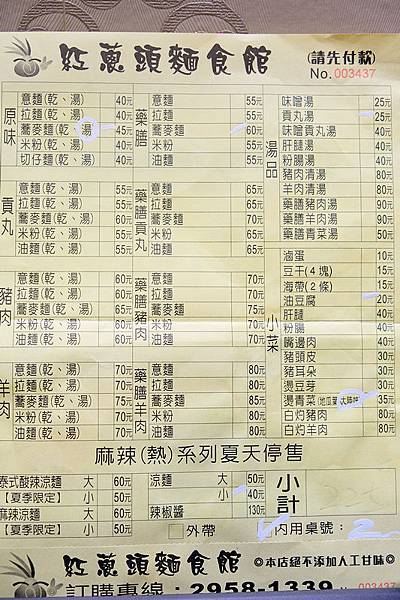 紅蔥頭麵食館 (請先付款)
No. 003437
原味
意麵(乾、湯) 40元
拉麵(乾、湯) 40元
蕎麥麵(乾、湯) 45元
米粉(乾、湯) 40元
切仔麵(乾、湯) 40元
貢丸
意麵(乾、湯) 55元
拉麵(乾、湯) 55元
蕎麥麵(乾、湯) 60元
米粉(乾、湯) 55元
油麵(乾、湯) 55元
豬肉
意麵(乾、湯) 60元
拉麵(乾、湯) 60元
蕎麥麵(乾、湯) 65元
米粉(乾、湯) 60元
油麵(乾、湯) 60元
羊肉
意麵(乾、湯) 70元
拉麵(乾、湯) 70元
蕎麥麵(乾、湯) 75元
米粉(乾、湯) 70元
油麵(乾、湯) 70元
藥膳
意麵 55元
拉麵 55元
蕎麥麵 60元
米粉 55元
油麵 55元
藥膳貢丸
意麵 65元
拉麵 65元
蕎麥麵 70元
米粉 65元
油麵 65元
藥膳豬肉
意麵 70元
拉麵 70元
蕎麥麵 75元
米粉 70元
油麵 70元
藥膳羊肉
意麵 80元
拉麵 80元
蕎麥麵 85元
米粉 80元
油麵 80元
湯品
味噌湯 25元
貢丸湯 25元
味噌貢丸湯 40元
肝腱湯 40元
粉腸湯 40元
豬肉清湯 80元
羊肉清湯 80元
藥膳豬肉湯 90元
藥膳羊肉湯 90元
藥膳青菜湯 50元
小菜
滷蛋 10元
豆干(4塊) 15元
海帶(2條) 15元
油豆腐 20元
肝腱 40元
粉腸 40元
嘴邊肉 40元
豬頭皮 30元
豬耳朵 30元
燙豆芽 30元
燙青菜 35元
白灼豬肉 80元
白灼羊肉 80元
麻辣(熱)系列夏天停售
泰式酸辣涼麵 大 60元
【夏季限定】 小 50元
麻辣涼麵 大 60元
【夏季限定】 小 50元
涼麵 大 50元
小 40元
辣椒醬 130元
小計
外帶 內用桌號: 2
紅蔥頭麵食館 ◎本店絕不添加人工甘味◎
訂購專線:2958-1339 003437